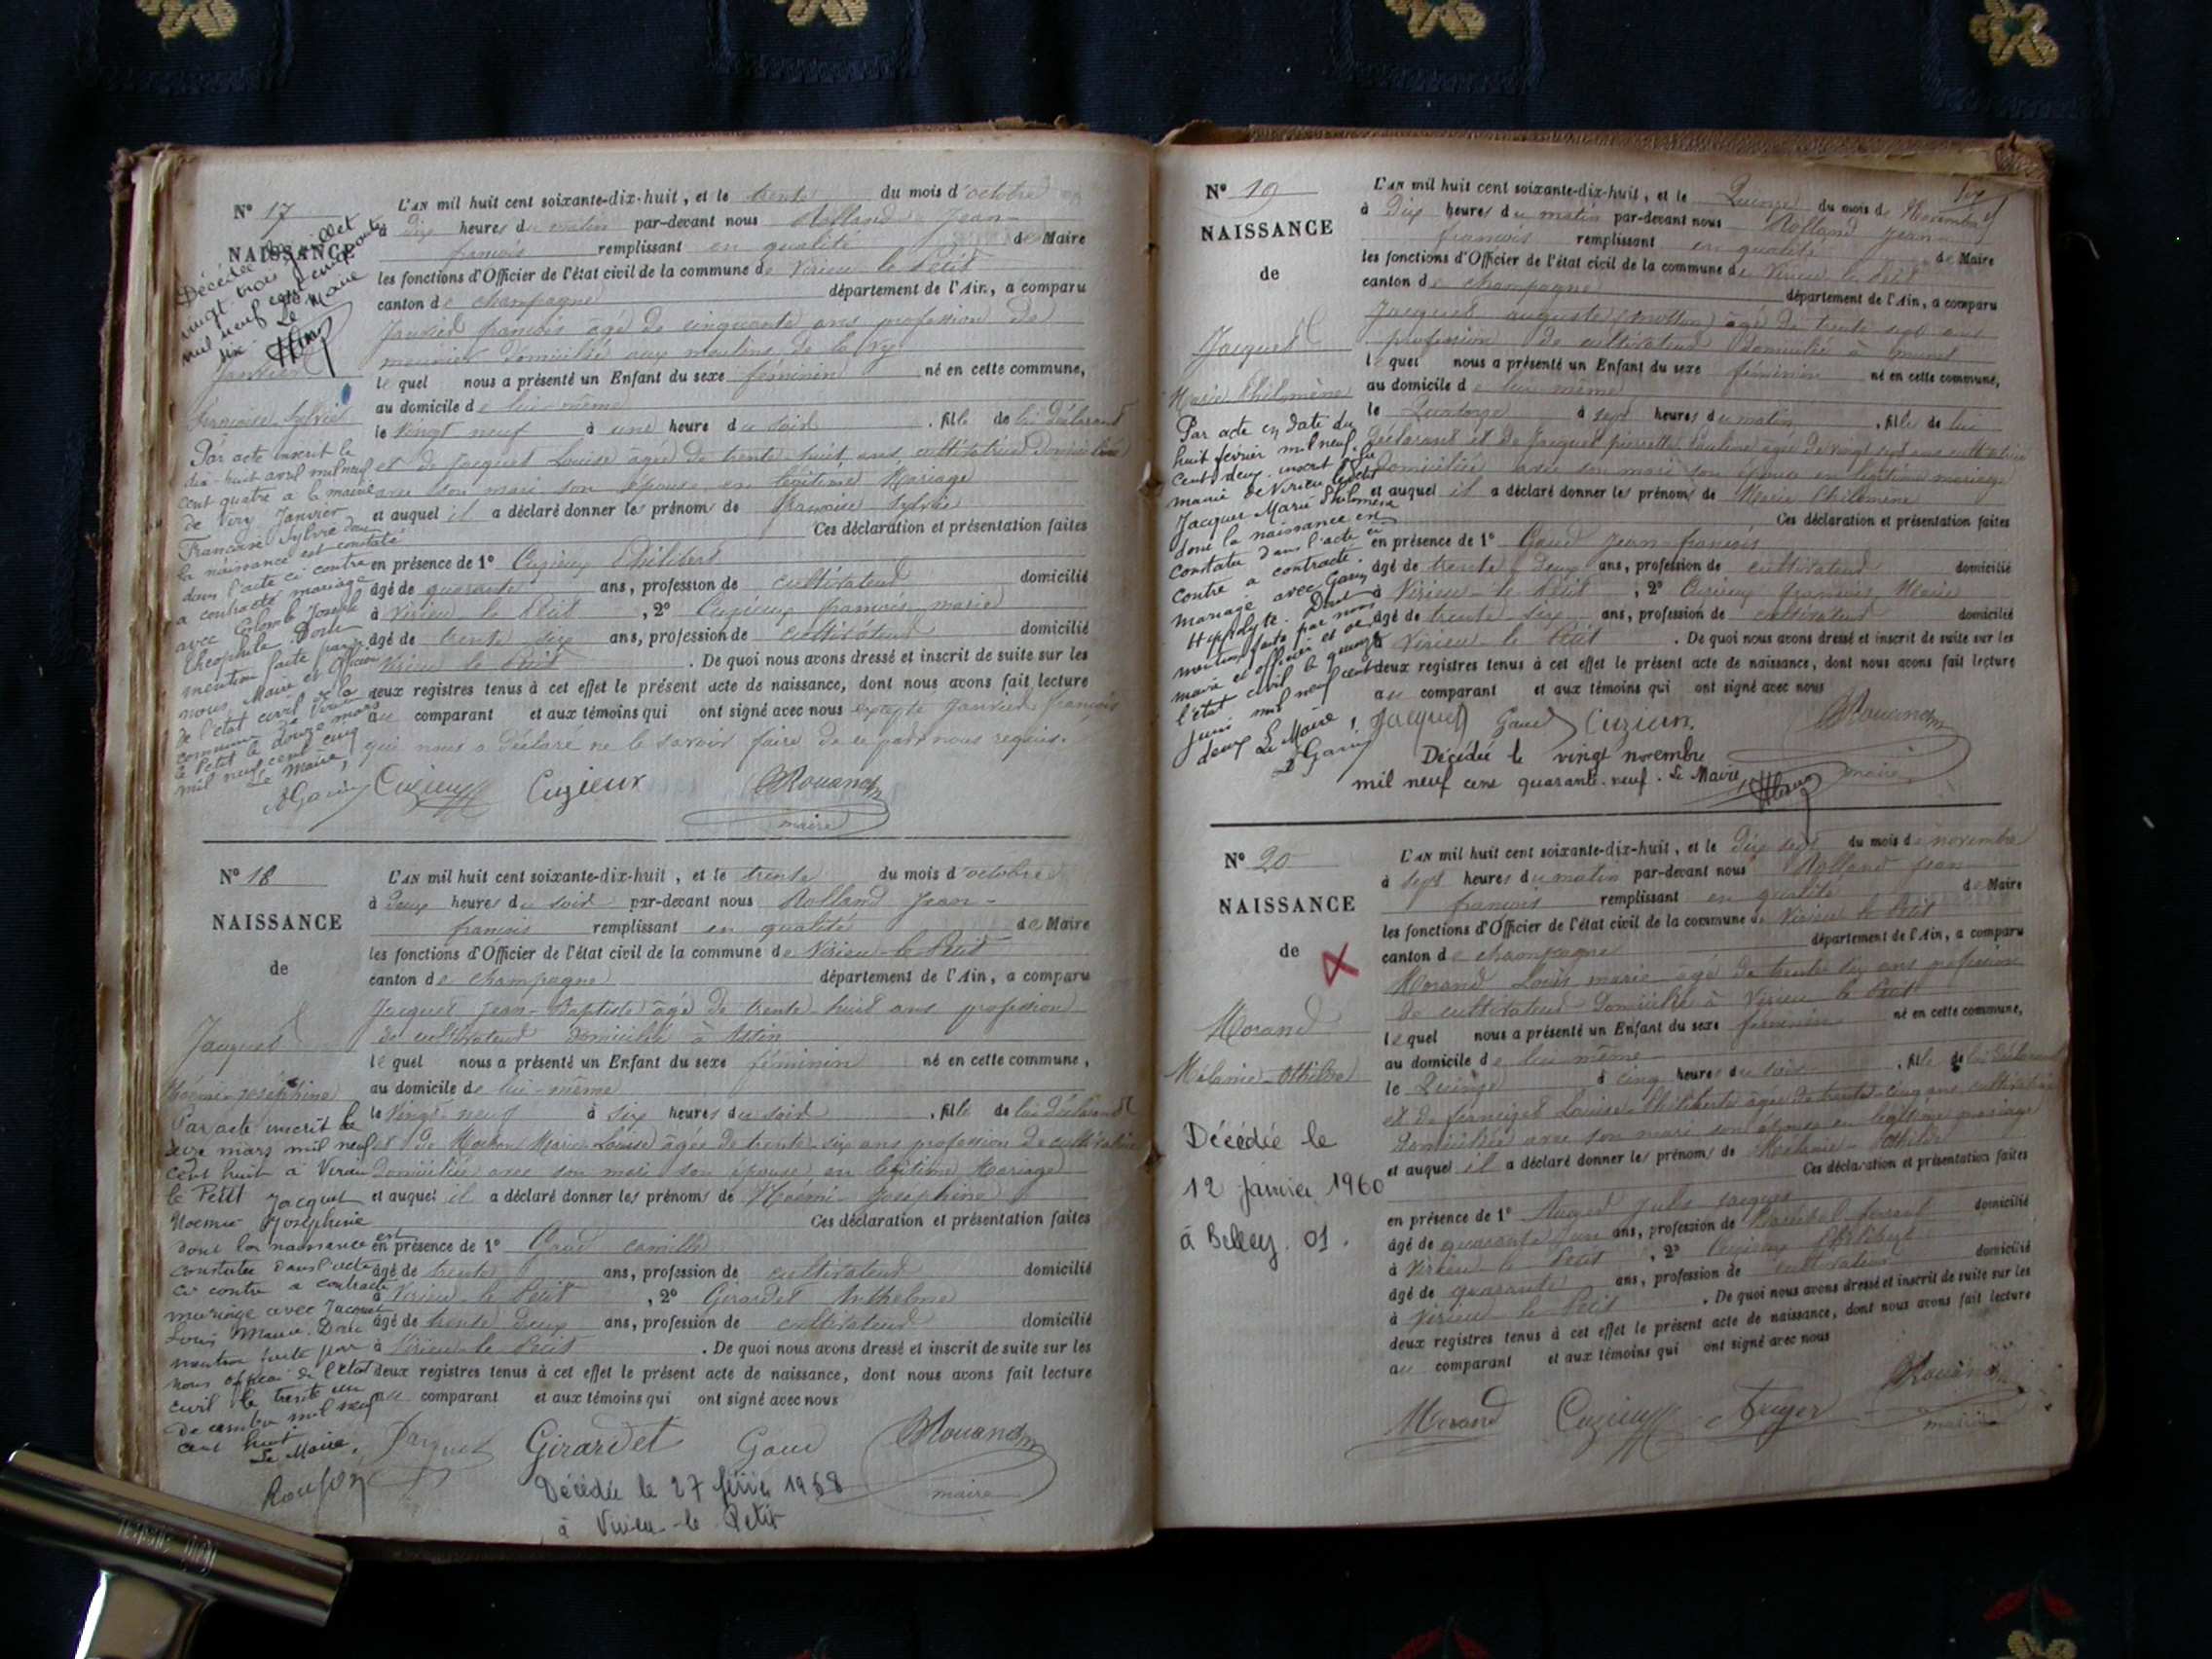 N° 17
NAISSANCE
Décédée le
vingt trois juillet
mil neuf cent cinquante
six. Le Maire
Janvier
Françoise Sylvie
Par acte inscrit le
dix-huit avril mil neuf
cent quatre à la mairie
de Viry Janvier
Françoise Sylvie dont
la naissance est constatée
dans l'acte ci contre
a contracté mariage
avec Colomb Joseph
Théophile. Dont
mention faite par
nous, Maire et Officier
de l'état civil de la
commune de Virieu
le Petit le douze mars
mil neuf cent cinq
Le Maire,
L'AN mil huit cent soixante-dix-huit, et le trente du mois d'octobre
à Dix heures du matin par-devant nous Rolland Jean-
françois remplissant en qualité de Maire
les fonctions d'Officier de l'état civil de la commune de Virieu le Petit
canton de champagne département de l'Ain, a comparu
Janvier françois âgé de cinquante ans profession de
meunier domicilié aux moulins de la Vy
lequel nous a présenté un Enfant du sexe féminin né en cette commune,
au domicile de lui-même
le vingt neuf à une heure du soir, fille de lui déclarant
et de Jacquet Louise âgée de trente-huit ans cultivatrice domiciliée
avec son mari son épouse en légitime Mariage
et auquel il a déclaré donner les prénoms de françoise Sylvie
Ces déclaration et présentation faites
en présence de 1° Cuzieux Philibert
âgé de quarante ans, profession de cultivateur domicilié
à Virieu le Petit, 2° Cuzieux françois marie
âgé de trente six ans, profession de cultivateur domicilié
Virieu le Petit. De quoi nous avons dressé et inscrit de suite sur les
deux registres tenus à cet effet le présent acte de naissance, dont nous avons fait lecture
au comparant et aux témoins qui ont signé avec nous excepté Janvier françois
qui nous a déclaré ne le savoir faire de ce par nous requis.
Cuzieux Cuzieux
maire
N° 18
NAISSANCE
de
Jacquet
Noémi-Joséphine
Par acte inscrit le
seize mars mil neuf
cent huit à Virieu
le Petit Jacquet
Noémie Joséphine
dont la naissance est
constatée dans l'acte
ci contre a contracté
mariage avec Jacquet
Louis Marie. Dont
mention faite par
nous officier de l'état
civil le trente un
décembre mil neuf
cent huit
Le Maire,
L'AN mil huit cent soixante-dix-huit, et le trente du mois d'octobre
à Deux heures du soir par-devant nous Rolland Jean-
françois remplissant en qualité de Maire
les fonctions d'Officier de l'état civil de la commune de Virieu-le-Petit
canton de champagne département de l'Ain, a comparu
Jacquet Jean-Baptiste âgé de trente huit ans profession
de cultivateur domicilié à Assin
lequel nous a présenté un Enfant du sexe féminin né en cette commune,
au domicile de lui-même
le Vingt neuf à six heures du soir, fille de lui déclarant
et de Marie Louise âgée de trente-six ans profession de cultivatrice
domiciliée avec son mari son épouse en légitime Mariage
et auquel il a déclaré donner les prénoms de Noémi-Joséphine
Ces déclaration et présentation faites
en présence de 1° Gaud camille
âgé de trente ans, profession de cultivateur domicilié
à Virieu-le-Petit, 2° Girardet Anthelme
âgé de trente deux ans, profession de cultivateur domicilié
à Virieu-le-Petit. De quoi nous avons dressé et inscrit de suite sur les
deux registres tenus à cet effet le présent acte de naissance, dont nous avons fait lecture
au comparant et aux témoins qui ont signé avec nous
Jacquet Girardet Gaud
maire
Décédée le 27 février 1958
à Virieu-le-Petit
N° 19
NAISSANCE
de
Jacquet
Marie Philomène
Par acte en date du
huit février mil neuf
cent deux inscrit à la
mairie de Virieu le petit
Jacquet Marie Philomène
dont la naissance est
constatée dans l'acte ci
contre a contracté
mariage avec Garin
Hippolyte. Dont
mention faite par nous
maire et officier de
l'état civil le quinze
juin mil neuf cent
deux Le Maire,
Garin
L'AN mil huit cent soixante-dix-huit, et le Quinze du mois de Novembre
à Dix heures du matin par-devant nous Rolland Jean
françois remplissant en qualité de Maire
les fonctions d'Officier de l'état civil de la commune de Virieu le Petit
canton de champagne département de l'Ain, a comparu
Jacquet auguste âgé de trente sept ans
profession de cultivateur domicilié à
lequel nous a présenté un Enfant du sexe féminin né en cette commune,
au domicile de lui-même
le Quatorze à sept heures du matin, fille de lui
déclarant et de Jacquet pierrette Pauline agée de vingt sept ans cultivatrice
domiciliée avec son mari son épouse en légitime mariage
et auquel il a déclaré donner les prénoms de Marie Philomène
Ces déclaration et présentation faites
en présence de 1° Gaud Jean-françois
âgé de trente-deux ans, profession de cultivateur domicilié
à Virieu-le-Petit, 2° Cuzieux françois Marie
âgé de trente-six ans, profession de cultivateur domicilié
à Virieu-le-Petit. De quoi nous avons dressé et inscrit de suite sur les
deux registres tenus à cet effet le présent acte de naissance, dont nous avons fait lecture
au comparant et aux témoins qui ont signé avec nous
Jacquet Gaud Cuzieux
maire
Décédée le vingt novembre
mil neuf cent quarante-neuf. Le Maire,
N° 20
NAISSANCE
de
Morand
Mélanie-Othilde
Décédée le
12 janvier 1960
à Belley. 01.
L'AN mil huit cent soixante-dix-huit, et le Dix sept du mois de novembre
à sept heures du matin par-devant nous Rolland Jean
françois remplissant en qualité de Maire
les fonctions d'Officier de l'état civil de la commune de Virieu le Petit
canton de champagne département de l'Ain, a comparu
Morand Louis marie âgé de trente six ans profession
de cultivateur domicilié à Virieu le Petit
lequel nous a présenté un Enfant du sexe féminin né en cette commune,
au domicile de lui-même
le Quinze à cinq heures du soir, fille de lui déclarant
et de Louise Philiberte agée de trente-cinq ans cultivatrice
domiciliée avec son mari son épouse en légitime mariage
et auquel il a déclaré donner les prénoms de Mélanie-Othilde
Ces déclaration et présentation faites
en présence de 1° Jules Jacques
âgé de quarante-un ans, profession de domicilié
à Virieu le Petit, 2° Cuzieux Philibert
âgé de quarante ans, profession de cultivateur domicilié
à Virieu le Petit. De quoi nous avons dressé et inscrit de suite sur les
deux registres tenus à cet effet le présent acte de naissance, dont nous avons fait lecture
au comparant et aux témoins qui ont signé avec nous
Morand Cuzieux
maire